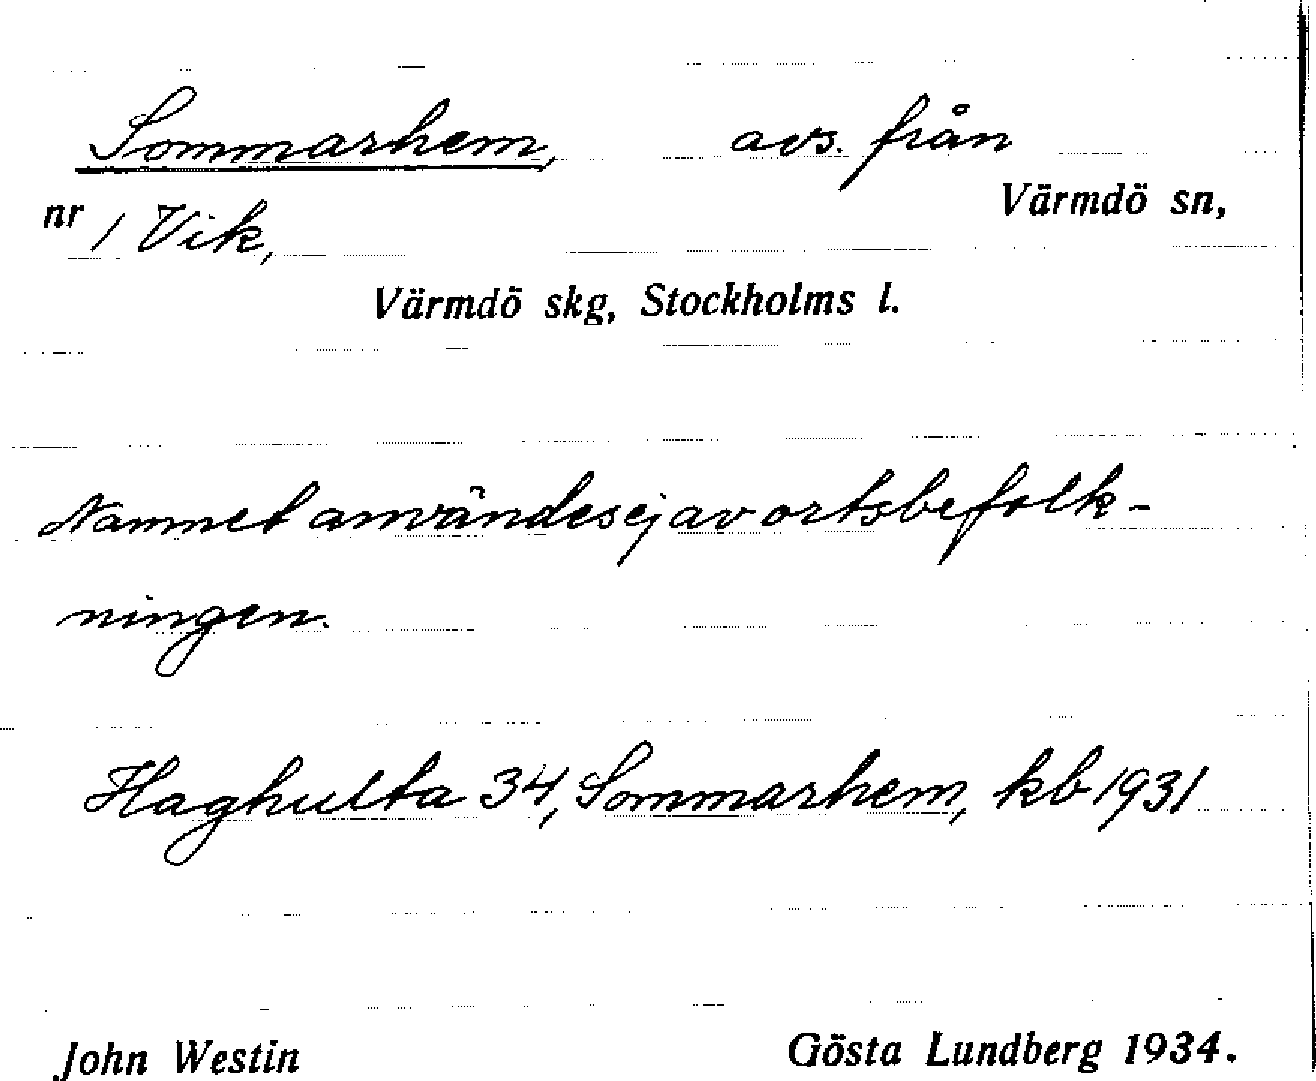 Sommarhem, avs. från
nr 1 Vik, Värmdö sn,
Värmdö skg, Stockholms l.
Namnet användes ej av ortsbefolk-
ningen.
Haghulta 34, Sommarhem, kb 1931
John Westin Gösta Lundberg 1934.